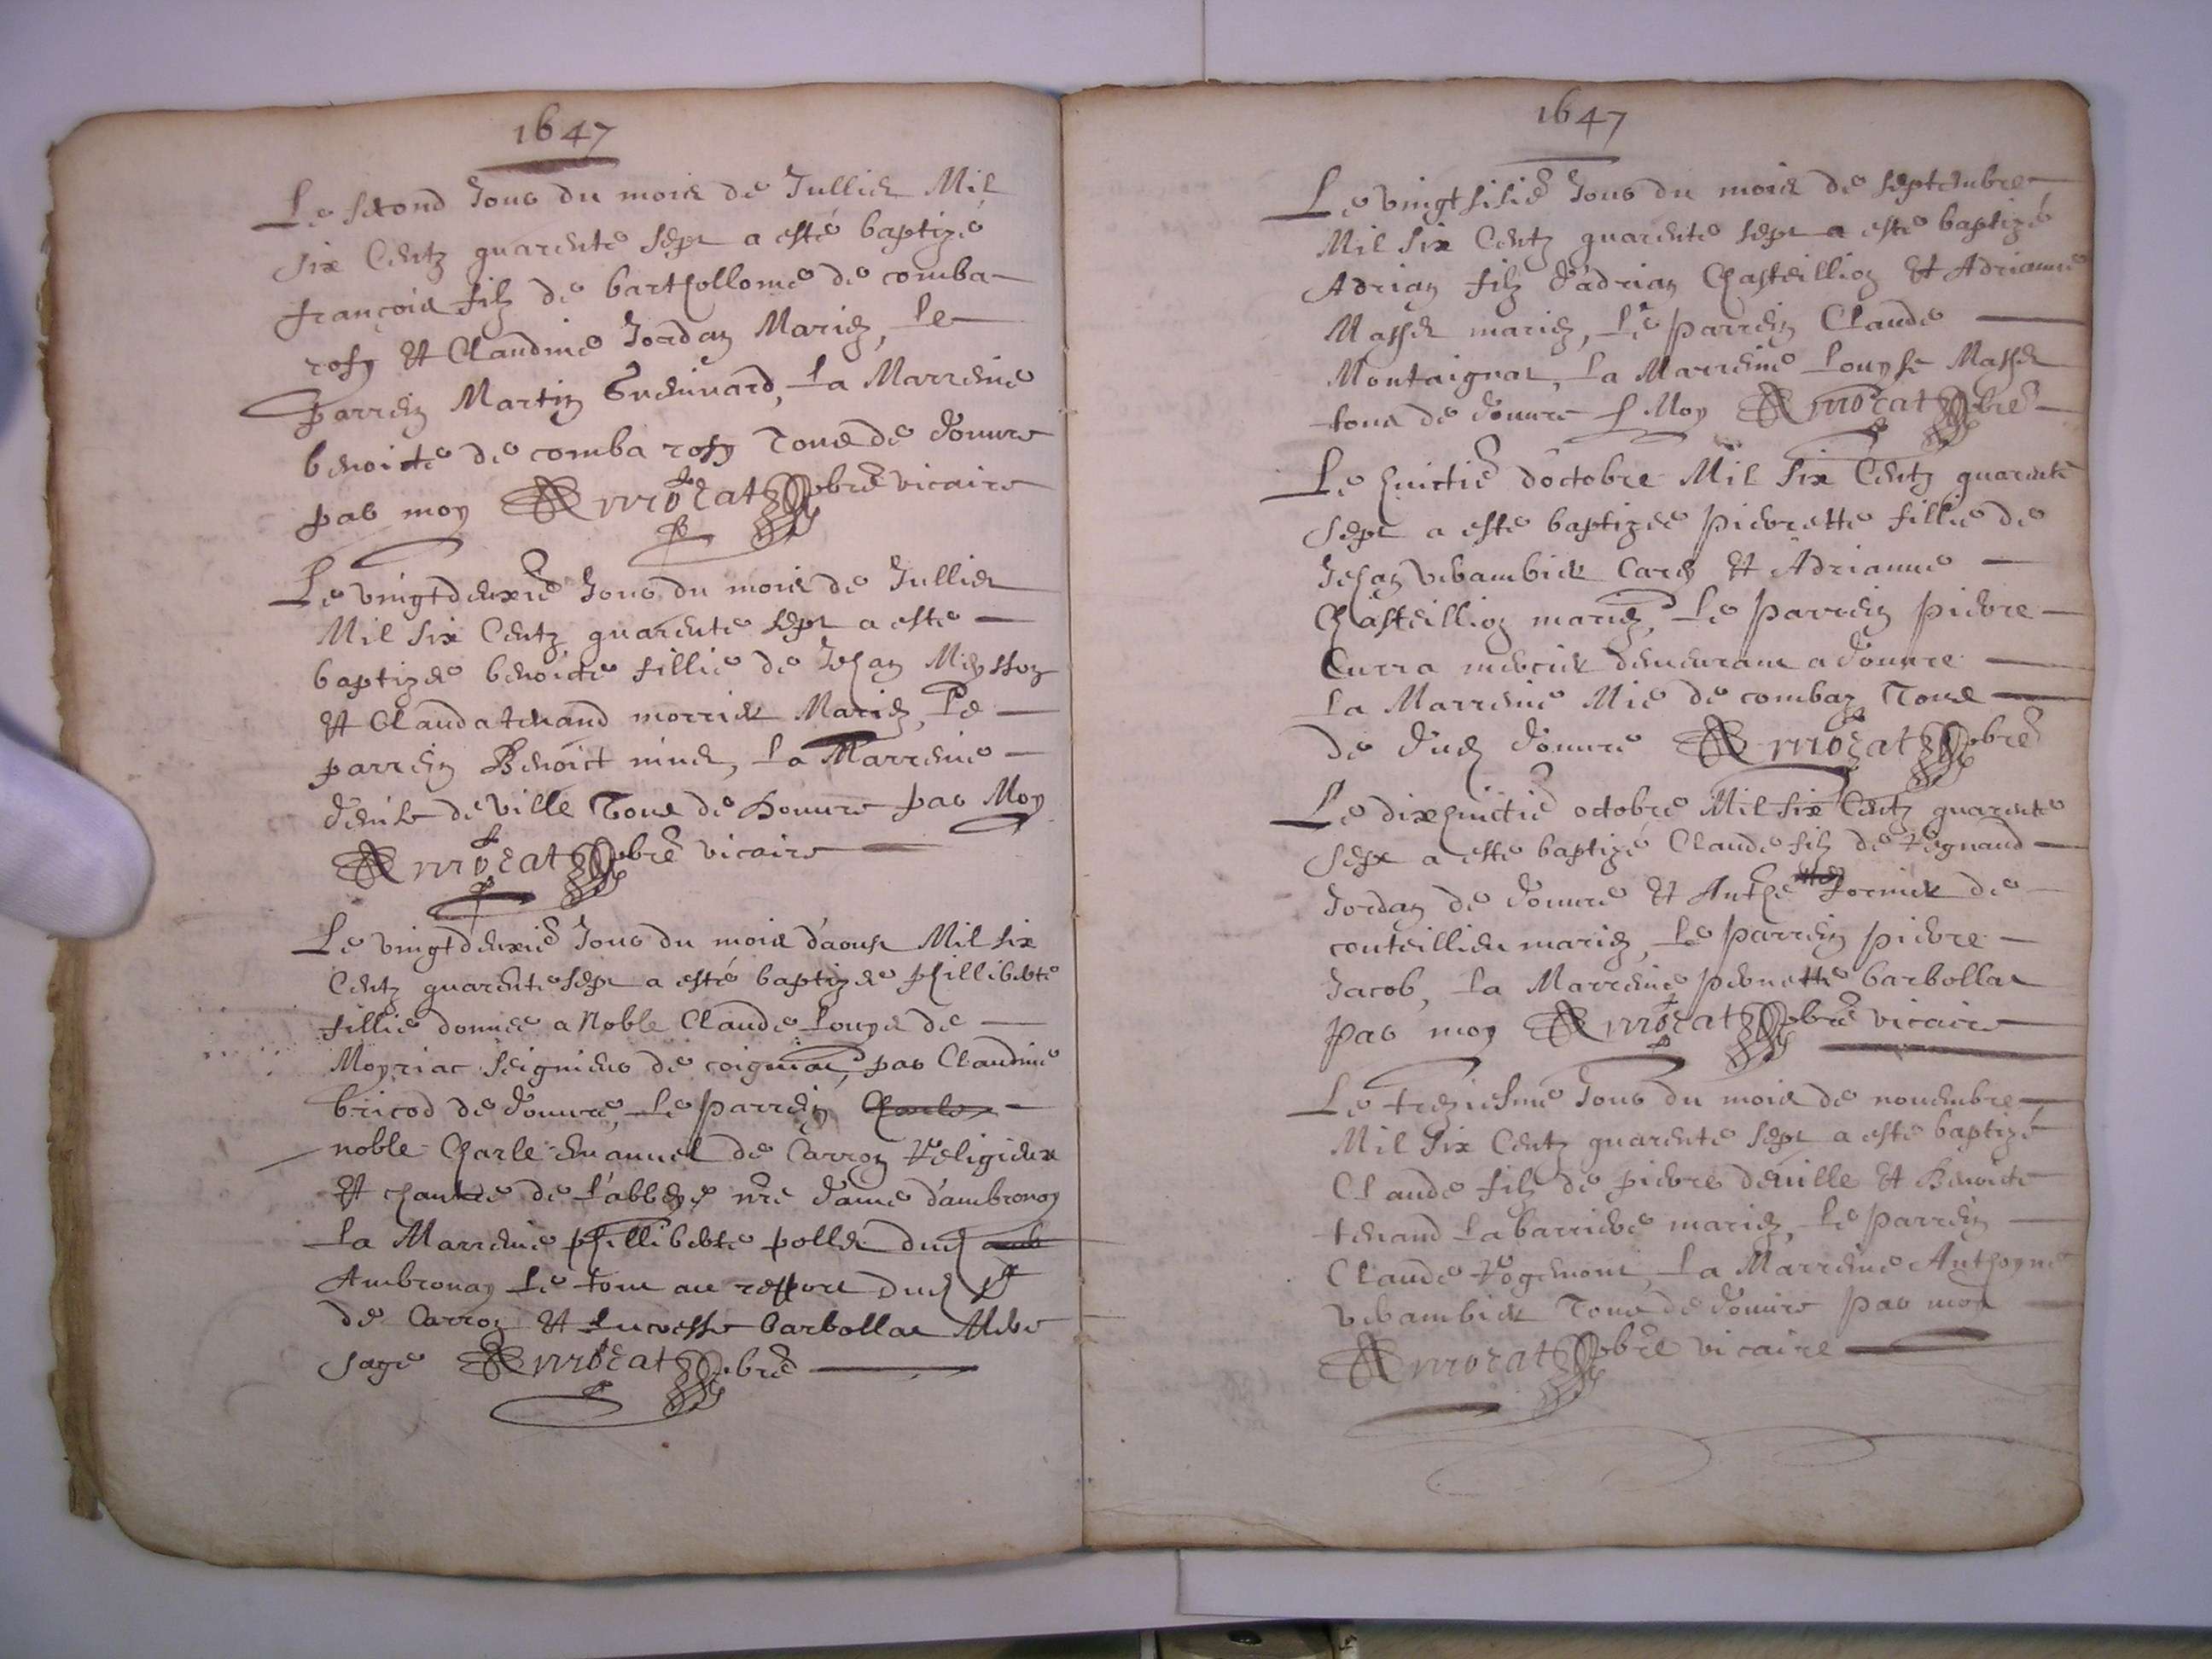 1647
Le second Jour du mois de Jullier Mil
six Centz quarente sept a esté baptizé
françois filz de barthollome de comba
rosy et Claudine Jordan Mariez, Le
parrein Martin Euvrard, La Marreine
benoicte de comba rosy Tous de douvre
par moy mocat pbre vicaire
Le vingtdeuxie Jour du mois de Jullier
Mil six Centz quarente sept a esté
baptizée benoicte fillie de Jehan Meysson
et Clauda tenand morrier Mariez, Le
parrein Benoict , La Marreine
denise de ville Tous de Douvre par Moy
mocat pbre vicaire
Le vingtdeuxie Jour du mois d'aoust Mil six
Centz quarentesept a esté baptizée philliberte
fillie donnée a Noble Claude Louys de
Moyriac seigneur de coignac, par Claudine
bricod de douvre, Le parrein Charles
noble Charle emanuel de Carron Religieux
et chantre de l'abbeye nre dame d'ambronay
La Marreine philliberte pollet dud amb
Ambronay Le tout au rapport dud sr
de Carron et Lucresse barbollat Mere
sage mocat pbre
1647
Le vingtsisie Jour du mois de septembre
Mil six Centz quarente sept a esté baptizé
Adrian filz d'adrian Chasteillion et Adrianne
Masset mariez, Le parrein Claude
Montaignat, La Marreine Louyse Masset
tous de douvre p Moy mocat pbre
Le huictie d'octobre Mil six Centz quarente
sept a esté baptizée pierrette fillie de
Jehan verambier Care et Adrianne
Chasteillion mariez, Le parrein pierre
Curra mercier demeurant a douvre
La Marreine Mie de combaz Tous
de dud douvre mocat pbre
Le dixhuictie octobre Mil six Centz quarente
sept a esté baptizé Claude filz de Regnaud
Jordan de douvre et Anthe fornier de
couteillieu mariez, Le parrein pierre
Jacob, La Marreine pernette barbollat
par moy mocat pbre vicaire
Le treziesme Jour du mois de novembre
Mil six Centz quarente sept a esté baptizé
Claude filz de pierre deville et Benoicte
tenand La barriere mariez, Le parrein
Claude Rogemont, La Marreine Anthoyne
verambier Tous de douvre par moy
mocat pbre vicaire